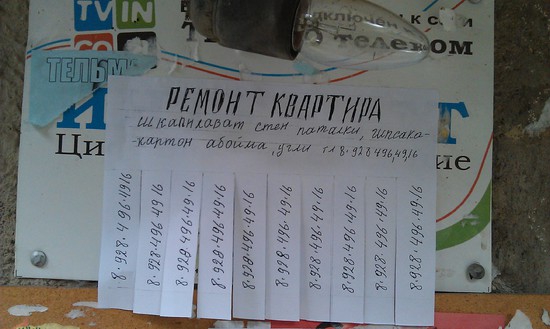 TVIN
ТЕЛЕКОМ
ТЕЛЬМ
РЕМОНТ КВАРТИРА
Шкапилават стен паталки, гипсака-
-картон абойма, угли тл 8.928 496,49,16
8.928.496.49.16
8.928.496.49.16
8.928.496.49.16
8.928.496.49.16
8.928.496.49.16
8.928.496.49.16
8.928.496.49.16
8.928.496.49.16
8.928.496.49.16
8.928.496.49.16